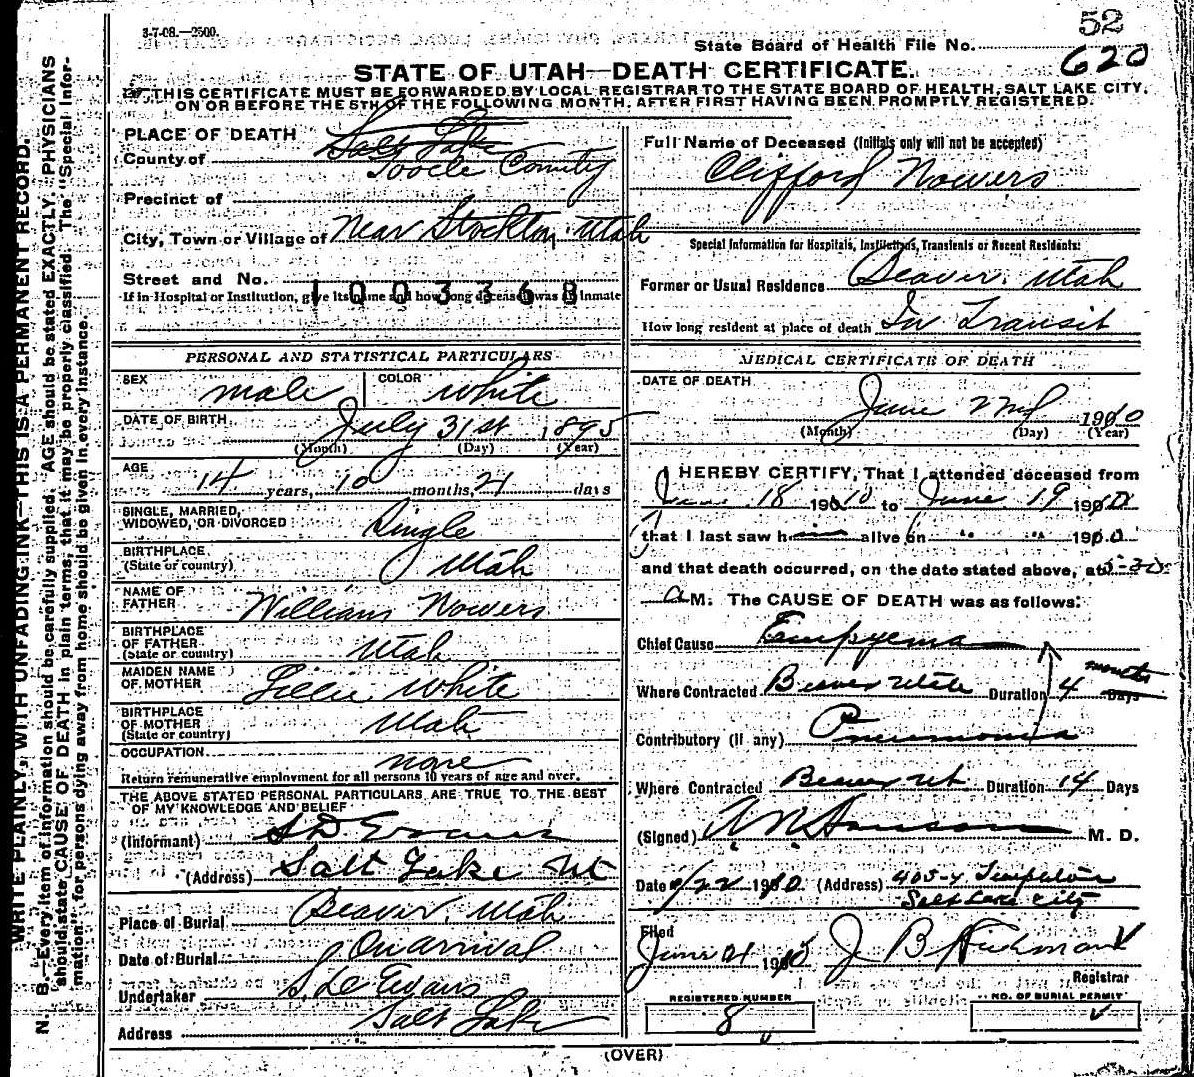 3-7-08.—2500.
52
State Board of Health File No. 620
STATE OF UTAH—DEATH CERTIFICATE.
THIS CERTIFICATE MUST BE FORWARDED BY LOCAL REGISTRAR TO THE STATE BOARD OF HEALTH, SALT LAKE CITY,
ON OR BEFORE THE 5TH OF THE FOLLOWING MONTH, AFTER FIRST HAVING BEEN PROMPTLY REGISTERED.
WRITE PLAINLY, WITH UNFADING INK—THIS IS A PERMANENT RECORD.
N. B.—Every item of information should be carefully supplied. AGE should be stated EXACTLY. PHYSICIANS
should state CAUSE OF DEATH in plain terms, that it may be properly classified. The "Special Infor-
mation" for persons dying away from home should be given in every instance.
PLACE OF DEATH
Salt Lake
County of Tooele County
Precinct of
City, Town or Village of Near Stockton, Utah
Street and No.
1003368
If in Hospital or Institution, give its name and how long deceased was an inmate
PERSONAL AND STATISTICAL PARTICULARS
SEX male COLOR white
DATE OF BIRTH July 31st 1895
(Month) (Day) (Year)
AGE 14 years, 10 months, 21 days
SINGLE, MARRIED,
WIDOWED, OR DIVORCED Single
BIRTHPLACE
(State or country) Utah
NAME OF
FATHER William Nowers
BIRTHPLACE
OF FATHER
(State or country) Utah
MAIDEN NAME
OF MOTHER Lillie White
BIRTHPLACE
OF MOTHER
(State or country) Utah
OCCUPATION none
Return remunerative employment for all persons 10 years of age and over.
THE ABOVE STATED PERSONAL PARTICULARS ARE TRUE TO THE BEST
OF MY KNOWLEDGE AND BELIEF
(Informant) S D Evans
(Address) Salt Lake Ut
Place of Burial Beaver, Utah
Date of Burial On arrival
Undertaker S. D. Evans
Address Salt Lake
Full Name of Deceased (Initials only will not be accepted)
Clifford Nowers
Special Information for Hospitals, Institutions, Transients or Recent Residents:
Former or Usual Residence Beaver, Utah
How long resident at place of death In Transit
MEDICAL CERTIFICATE OF DEATH
DATE OF DEATH
June 22nd 1910
(Month) (Day) (Year)
I HEREBY CERTIFY, That I attended deceased from
June 18 1910 to June 19 1910
that I last saw him alive on " " 1910
and that death occurred, on the date stated above, at 5-30
a M. The CAUSE OF DEATH was as follows:
Chief Cause Empyema
Where Contracted Beaver Utah Duration 4 months Days
Contributory (if any) Pneumonia
Where Contracted Beaver Ut Duration 14 Days
(Signed) M. D.
Date 6/22 1910 (Address) 405-7 Templeton
Salt Lake City
Filed
June 21 1910 J B Registrar
REGISTERED NUMBER
8
NO. OF BURIAL PERMIT
(OVER)